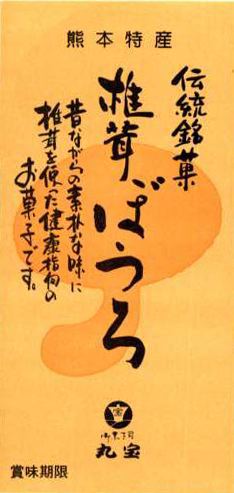 熊本特産
伝統銘菓
椎茸ぼうろ
昔ながらの素朴な味に
椎茸を使った健康指向の
お菓子です。
宝
御菓子司
丸宝
賞味期限